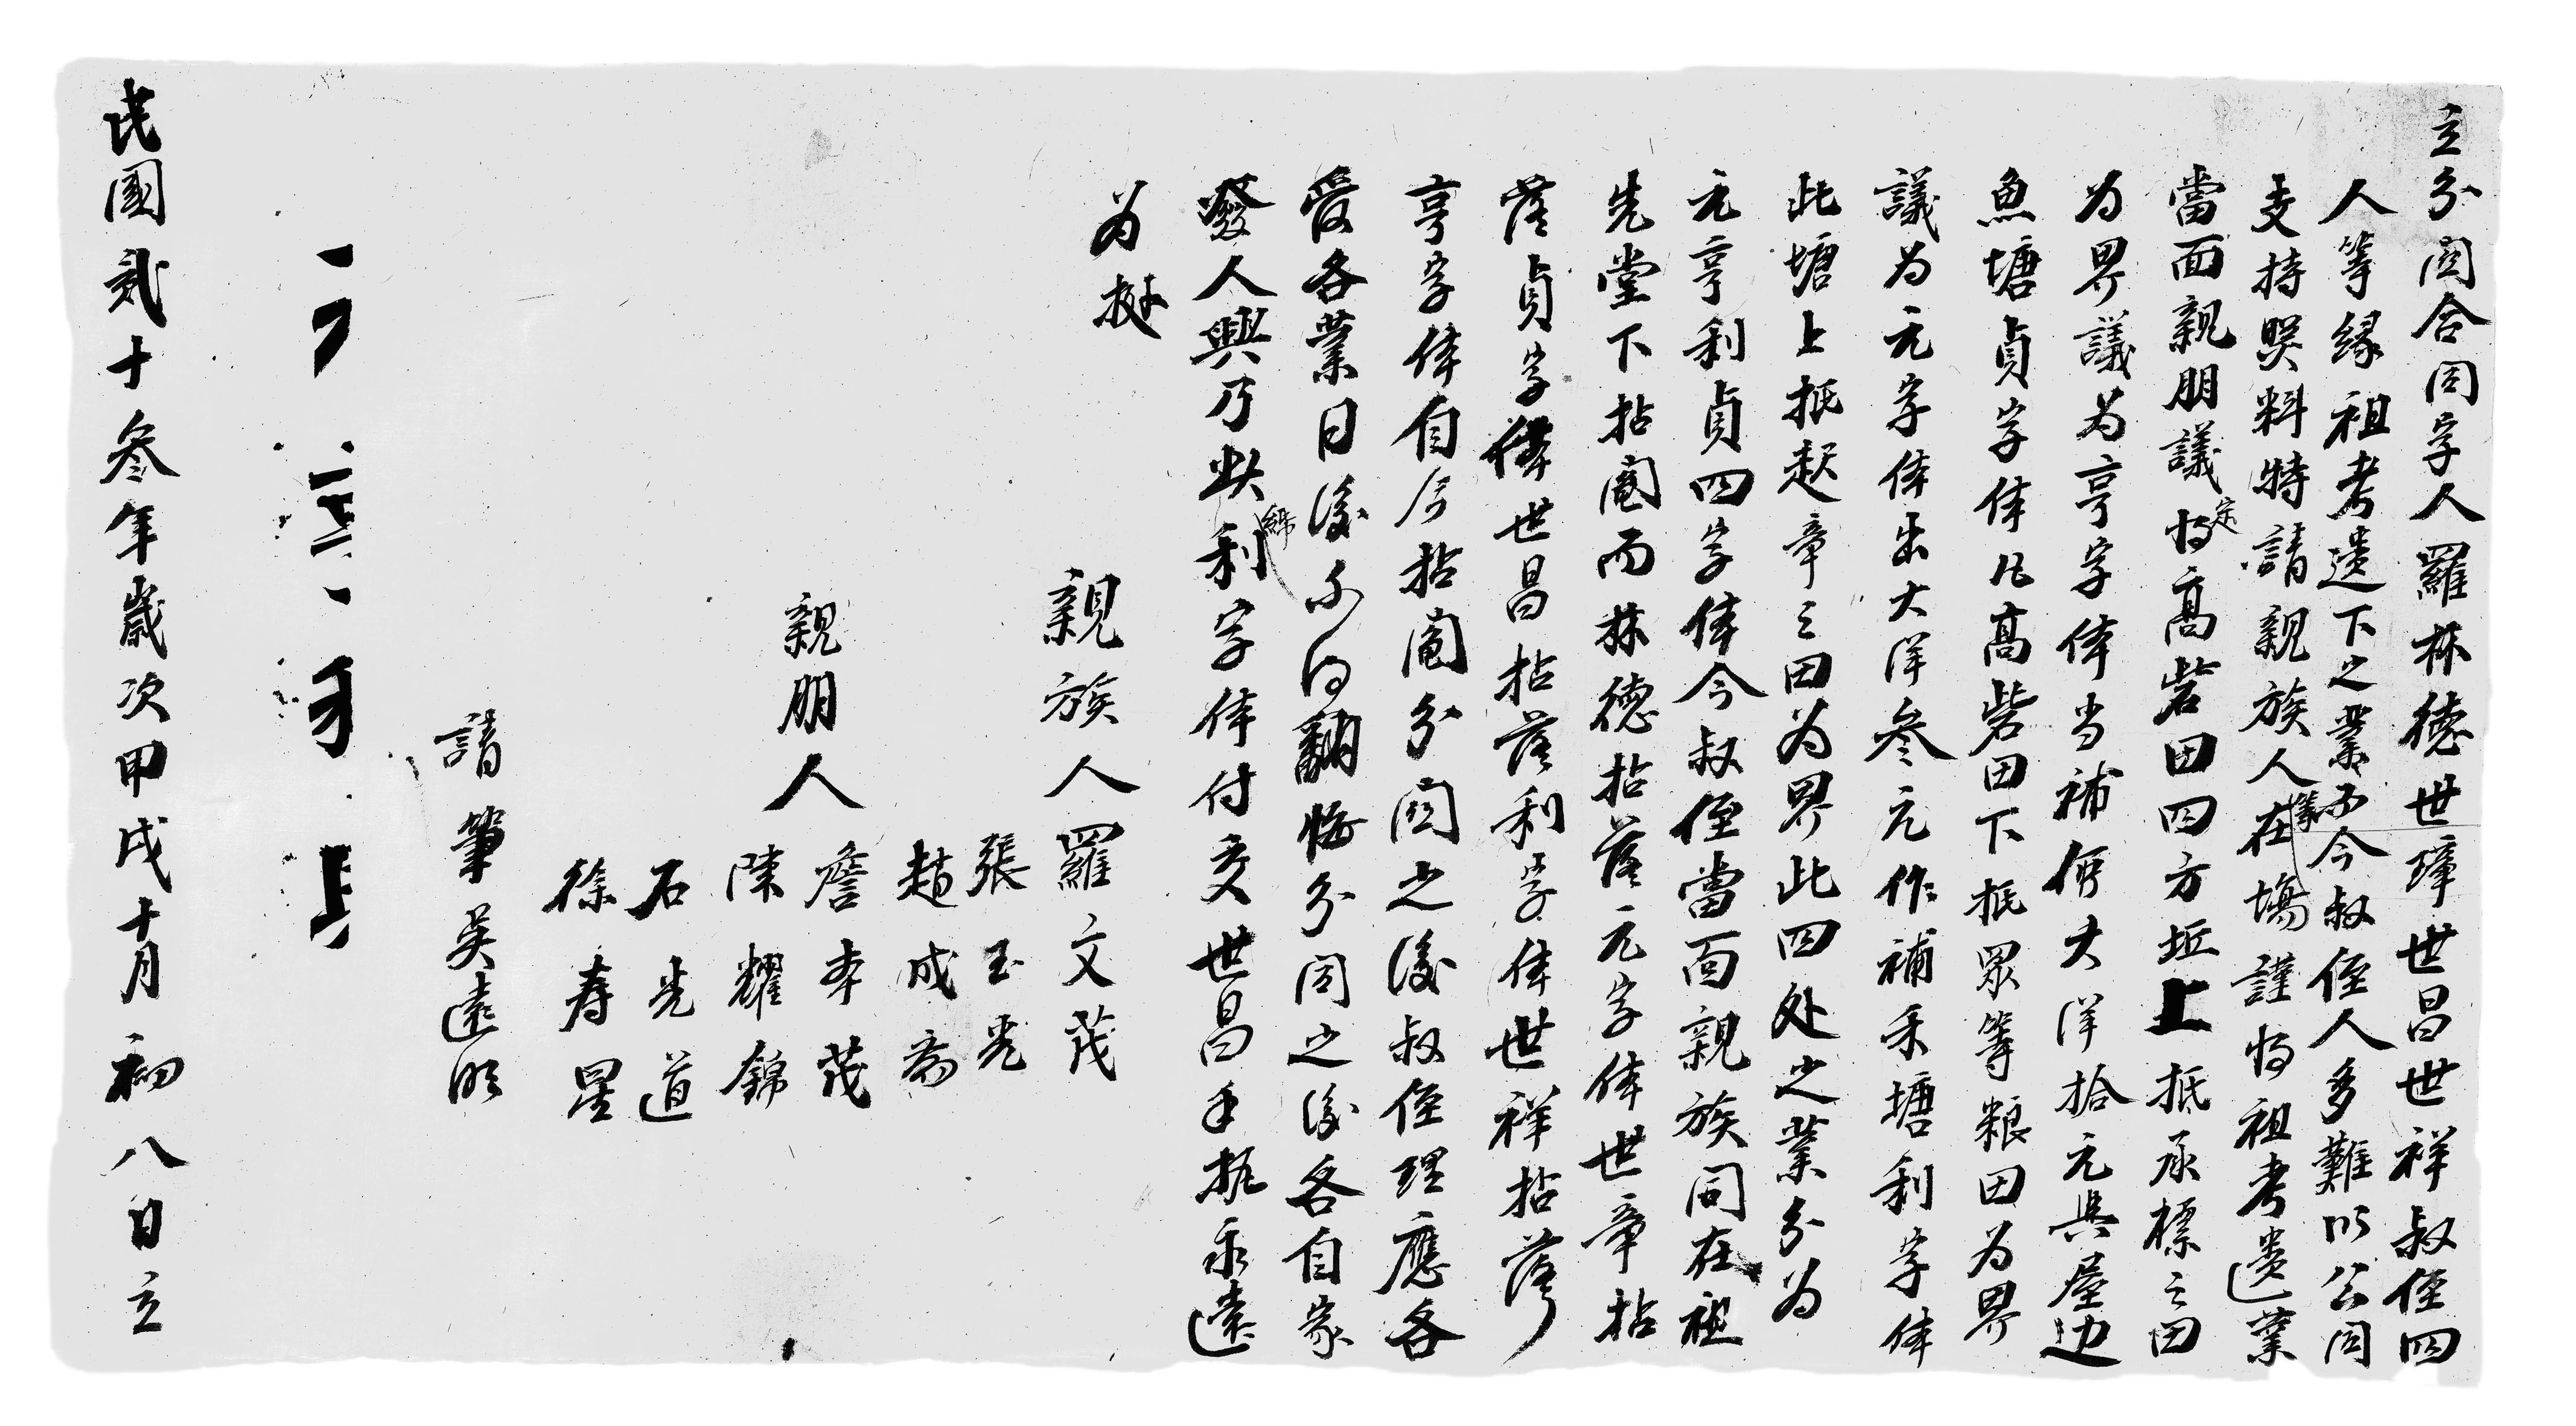 立分阄合同字人羅林德世璋世昌世祥叔侄四
人等緣祖考遺下之業今叔侄人多難以公同
支持照料特請親族人等在塲謹將祖考遺業
當面親朋議定將高砦田四方坵上抵承標之田
为界議为亨字体当補何大洋拾元與屋边
魚塘貞字体凡高砦田下抵眾等粮田为界
議为元字体出大洋叄元作補禾塘利字体
此塘上抵起章之田为界此四处之業分为
元亨利貞四字体今叔侄當面親族同在祖
先堂下拈阄而林德拈落元字体世章拈
落貞字体世昌拈落利字体世祥拈落
亨字体自今拈阄分阄之後叔侄理應各
受各業日後不得翻悔分阄之後各自家
發人興乃以利字体付交世昌手执永遠
为挺
親族人羅文茂
張玉光
趙成斋
親朋人詹本茂
陳耀錦
石光道
徐寿星
請筆吳遠明
民國貳十叄年歲次甲戌十月初八日立